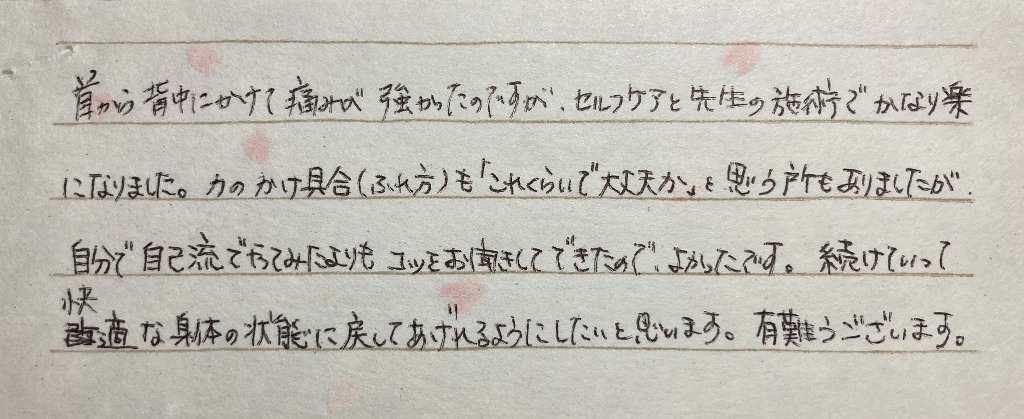 首から背中にかけて痛みが強かったのですが、セルフケアと先生の施術でかなり楽
になりました。力のかけ具合(ふれ方)も「これくらいで大丈夫か」と思う所もありましたが、
自分で自己流でやってみたよりもコツをお聞きしてできたので、よかったです。続けていって
快適な身体の状態に戻してあげれるようにしたいと思います。有難うございます。